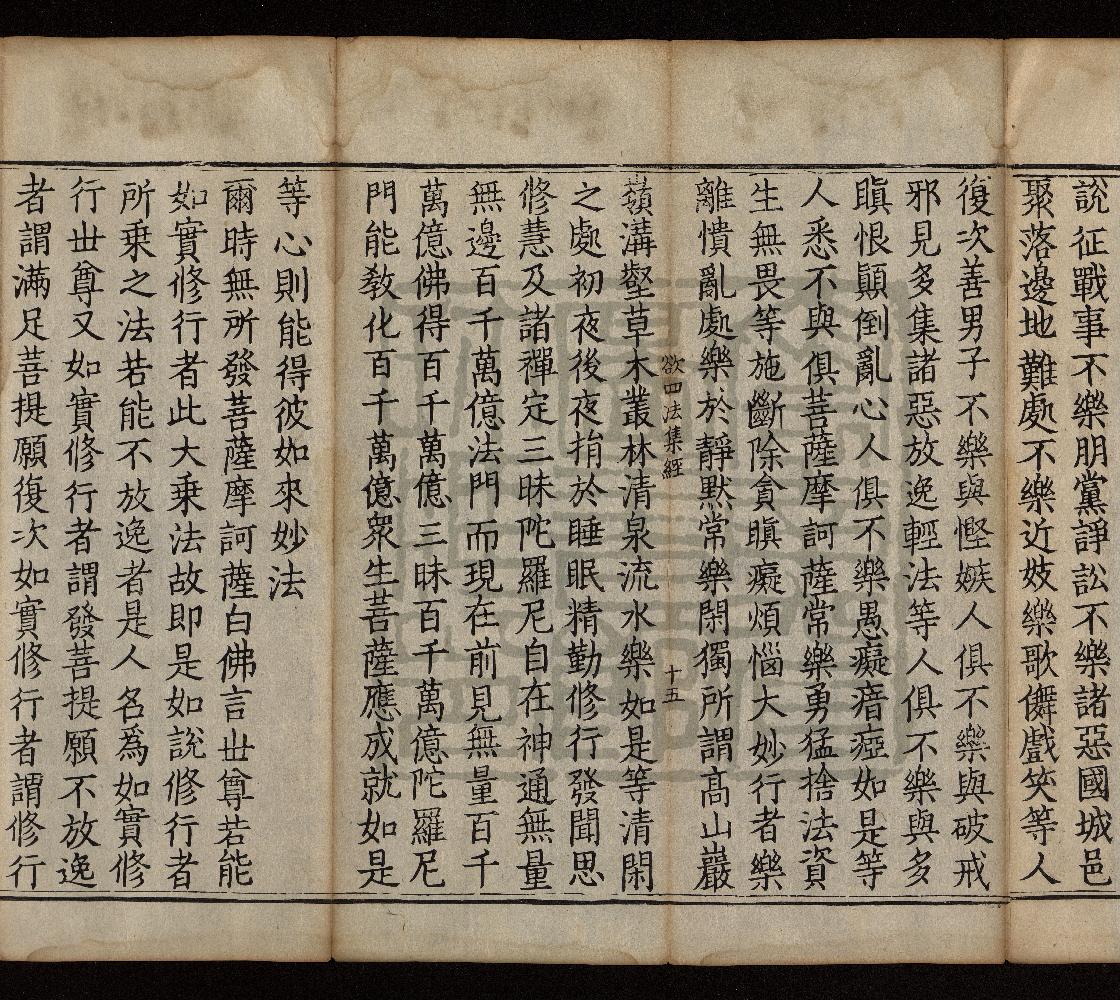 說征戰事不樂朋黨諍訟不樂諸惡國城邑
聚落邊地難處不樂近妓樂歌儛戲笑等人
復次善男子不樂與慳嫉人俱不樂與破戒
邪見多集諸惡放逸輕法等人俱不樂與多
瞋恨顚倒亂心人俱不樂愚癡瘖瘂如是等
人悉不與俱菩薩摩訶薩常樂勇猛捨法資
生無畏等施斷除貪瞋癡煩惱大妙行者樂
離憒亂處樂於靜默常樂閑獨所謂高山巖
欲四法集經 十五
嶺溝壑草木叢林清泉流水樂如是等清閑
之處初夜後夜捎於睡眠精勤修行發聞思
修慧及諸禪定三昧陀羅尼自在神通無量
無邊百千萬億法門而現在前見無量百千
萬億佛得百千萬億三昧百千萬億陀羅尼
門能敎化百千萬億衆生菩薩應成就如是
等心則能得彼如來妙法
爾時無所發菩薩摩訶薩白佛言世尊若能
如實修行者此大乘法故即是如說修行者
所乗之法若能不放逸者是人名爲如實修
行世尊又如實修行者謂發菩提願不放逸
者謂滿足菩提願復次如實修行者謂修行